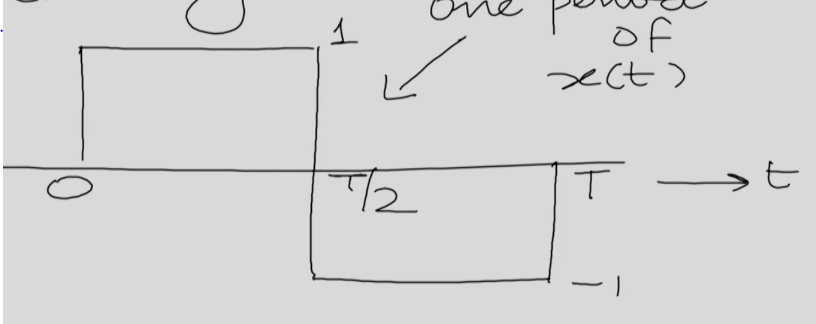 one period
1
of
x(t)
0
T/2
T
t
-1